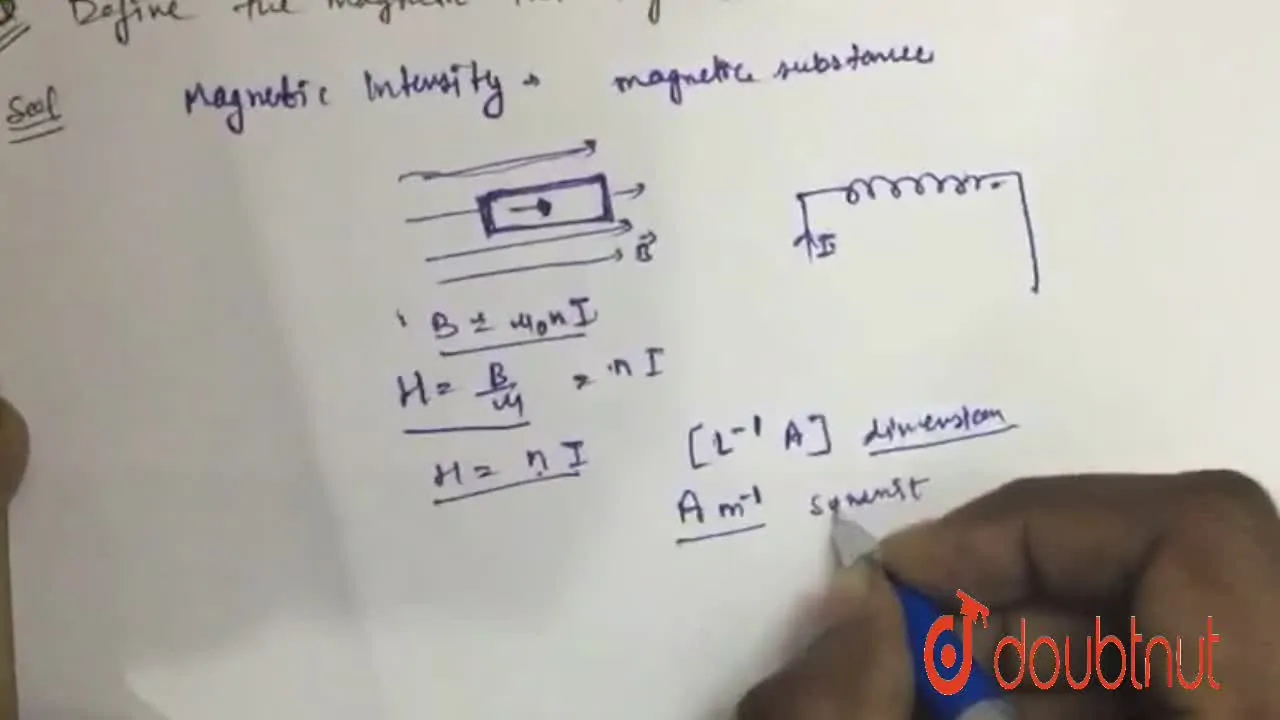 Define the magnetic
Sol
Magnetic Intensity → magnetic substance
B⃗
I
B = μ₀nI
H = B/μ = nI
H = nI
[L⁻¹ A] dimension
A m⁻¹ SI unit
doubtnut